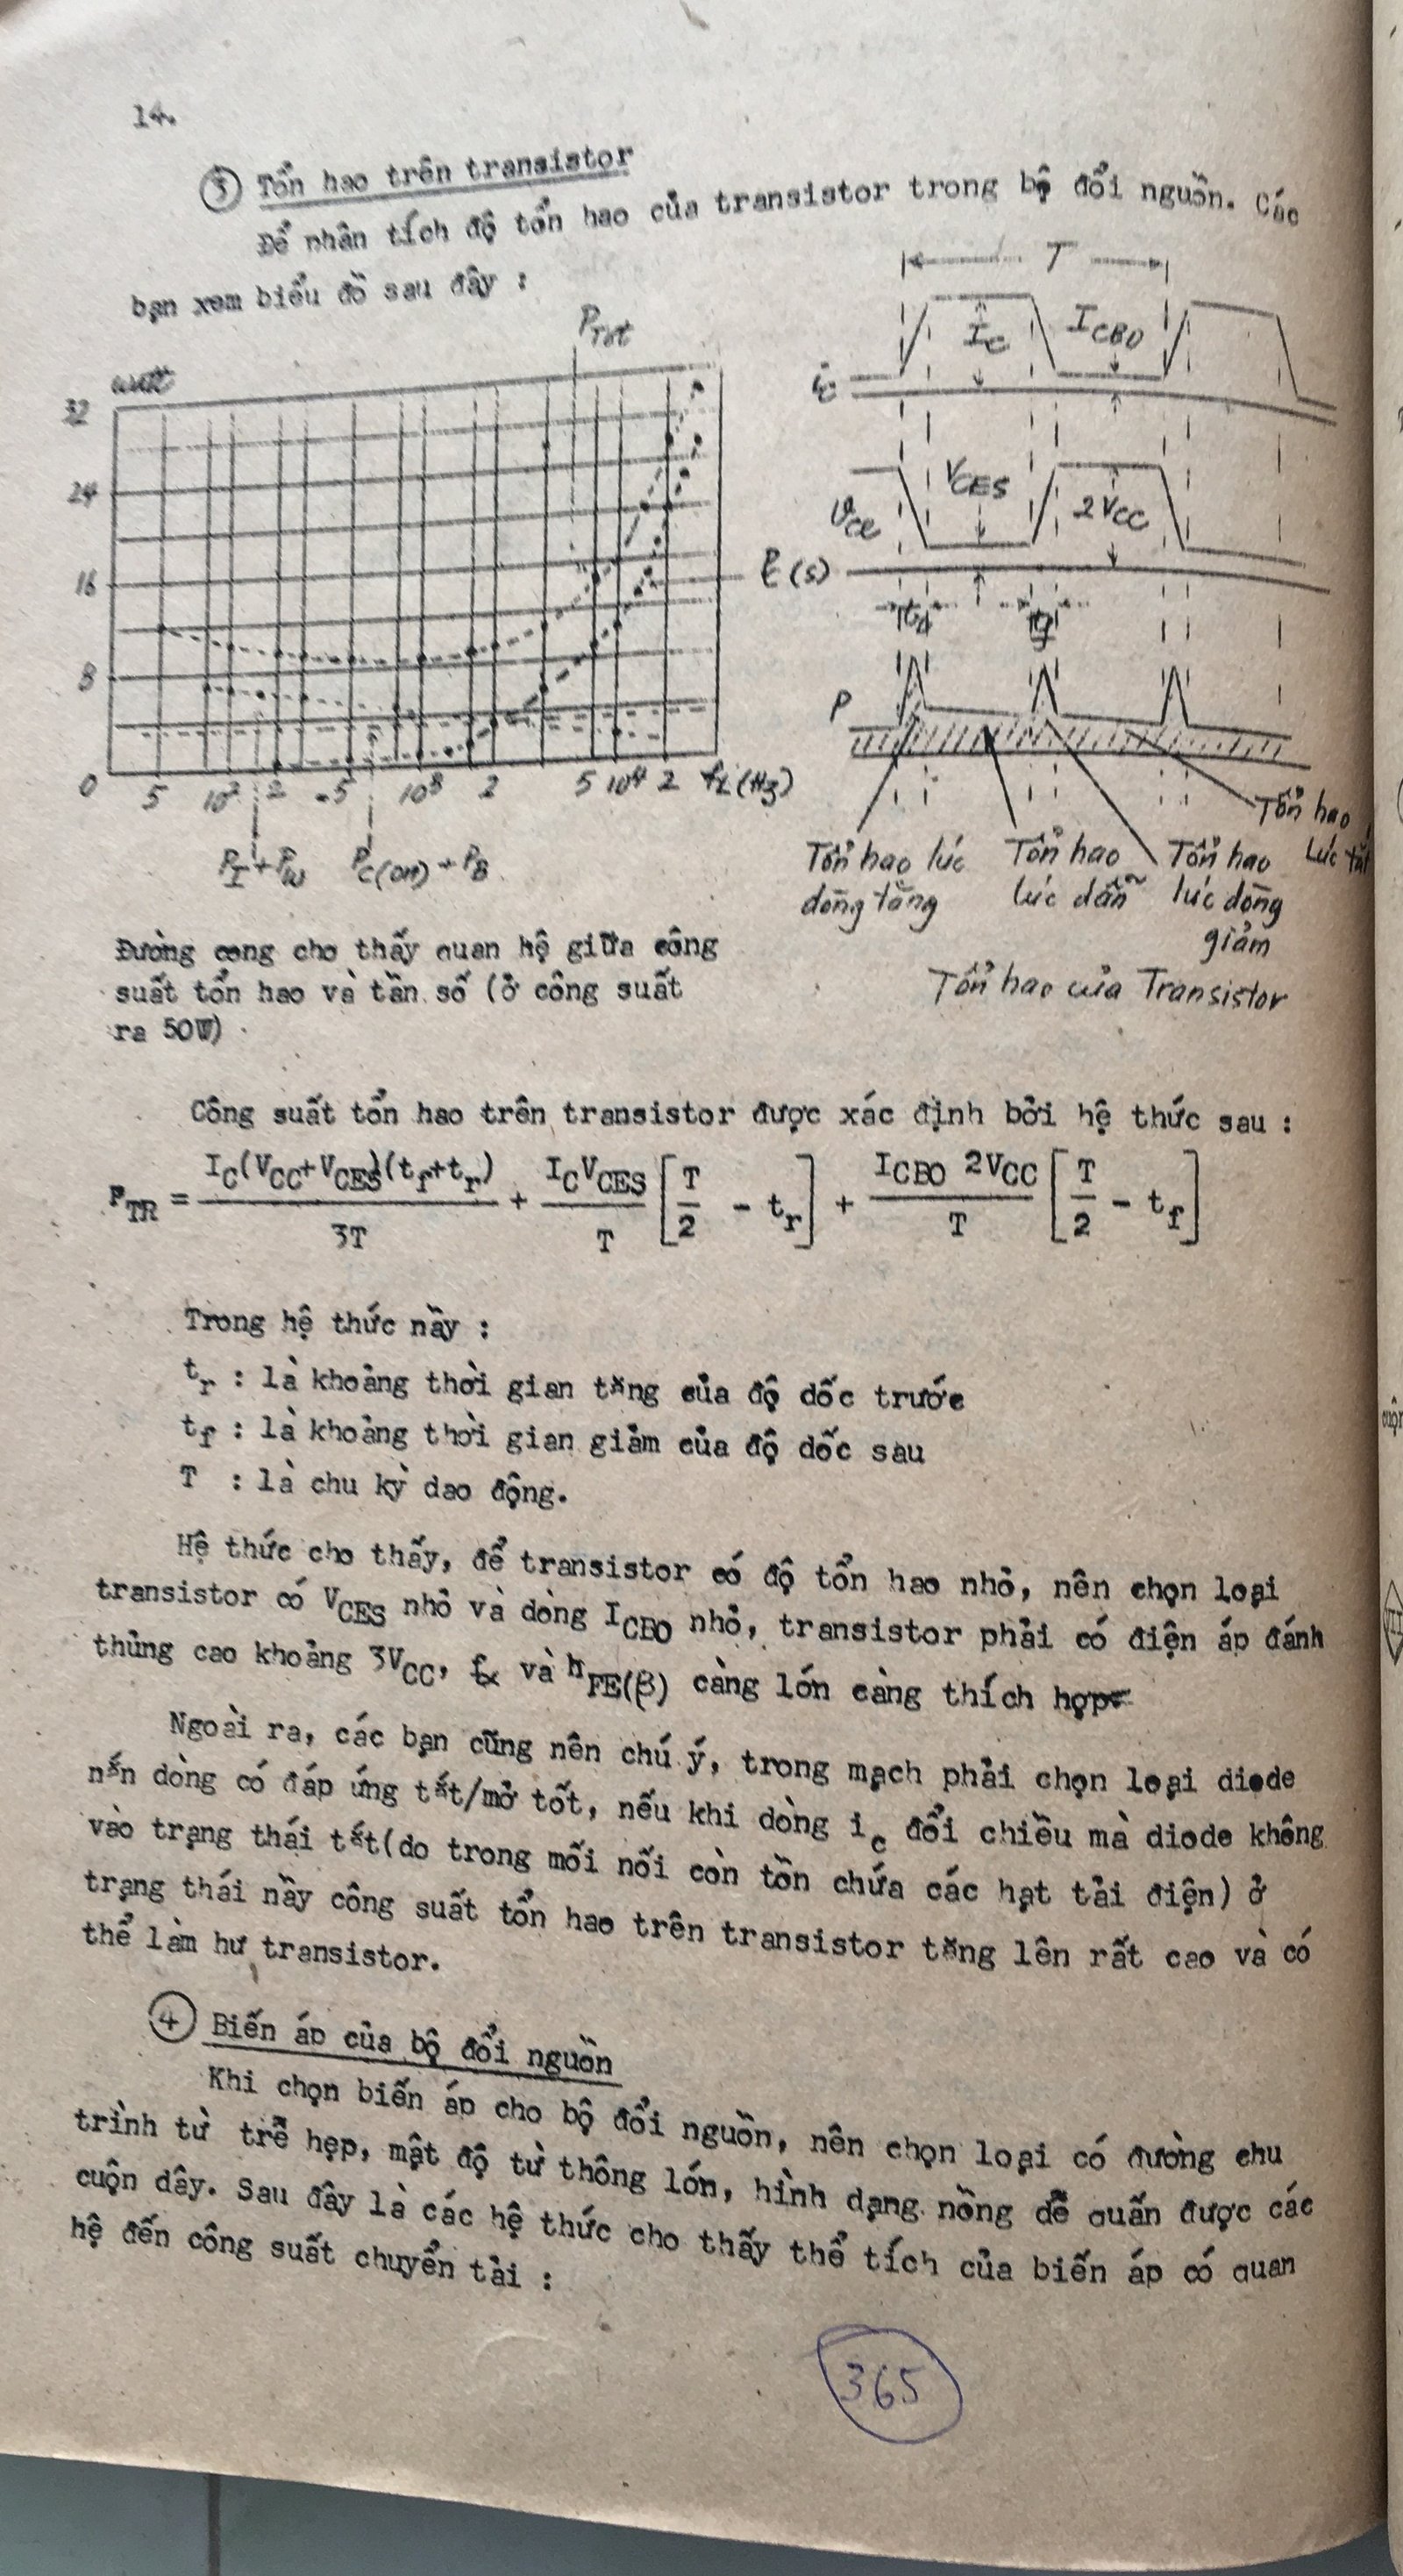 14.
③ Tổn hao trên transistor
Để phân tích độ tổn hao của transistor trong bộ đổi nguồn. Các
bạn xem biểu đồ sau đây :
P_Tot
watt
32
24
16
8
0
5 10² 2 .5 10³ 2 5 10⁴ 2 f_L(Hz)
P_I + P_W P_C(ON) + P_B
T
i_c I_C I_CBO
v_ce V_CES 2V_CC
t(s)
P
Tổn hao lúc dòng tăng
Tổn hao lúc dẫn
Tổn hao lúc dòng giảm
Tổn hao lúc tắt
Tổn hao của Transistor
Đường cong cho thấy quan hệ giữa công
suất tổn hao và tần số (ở công suất
ra 50W)
Công suất tổn hao trên transistor được xác định bởi hệ thức sau :
P_TR = I_C(V_CC+V_CES)(t_f+t_r) / 3T + I_C V_CES / T [T/2 - t_r] + I_CBO 2V_CC / T [T/2 - t_f]
Trong hệ thức nầy :
t_r : là khoảng thời gian tăng của độ dốc trước
t_f : là khoảng thời gian giảm của độ dốc sau
T : là chu kỳ dao động.
Hệ thức cho thấy, để transistor có độ tổn hao nhỏ, nên chọn loại
transistor có V_CES nhỏ và dòng I_CBO nhỏ, transistor phải có điện áp đánh
thủng cao khoảng 3V_CC, f_α và h_FE(β) càng lớn càng thích hợp
Ngoài ra, các bạn cũng nên chú ý, trong mạch phải chọn loại diode
nắn dòng có đáp ứng tắt/mở tốt, nếu khi dòng i_c đổi chiều mà diode không
vào trạng thái tắt(do trong mối nối còn tồn chứa các hạt tải điện) ở
trạng thái nầy công suất tổn hao trên transistor tăng lên rất cao và có
thể làm hư transistor.
④ Biến áp của bộ đổi nguồn
Khi chọn biến áp cho bộ đổi nguồn, nên chọn loại có đường chu
trình từ trễ hẹp, mật độ từ thông lớn, hình dạng nồng dễ quấn được các
cuộn dây. Sau đây là các hệ thức cho thấy thể tích của biến áp có quan
hệ đến công suất chuyển tải :
365